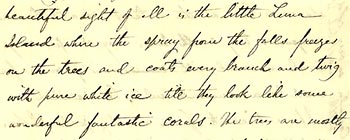 beautiful sight of all is the little Luna
Island where the spray from the falls freezes
on the trees and coats every branch and twig
with pure white ice till they look like some
wonderful fantastic corals. The trees are mostly